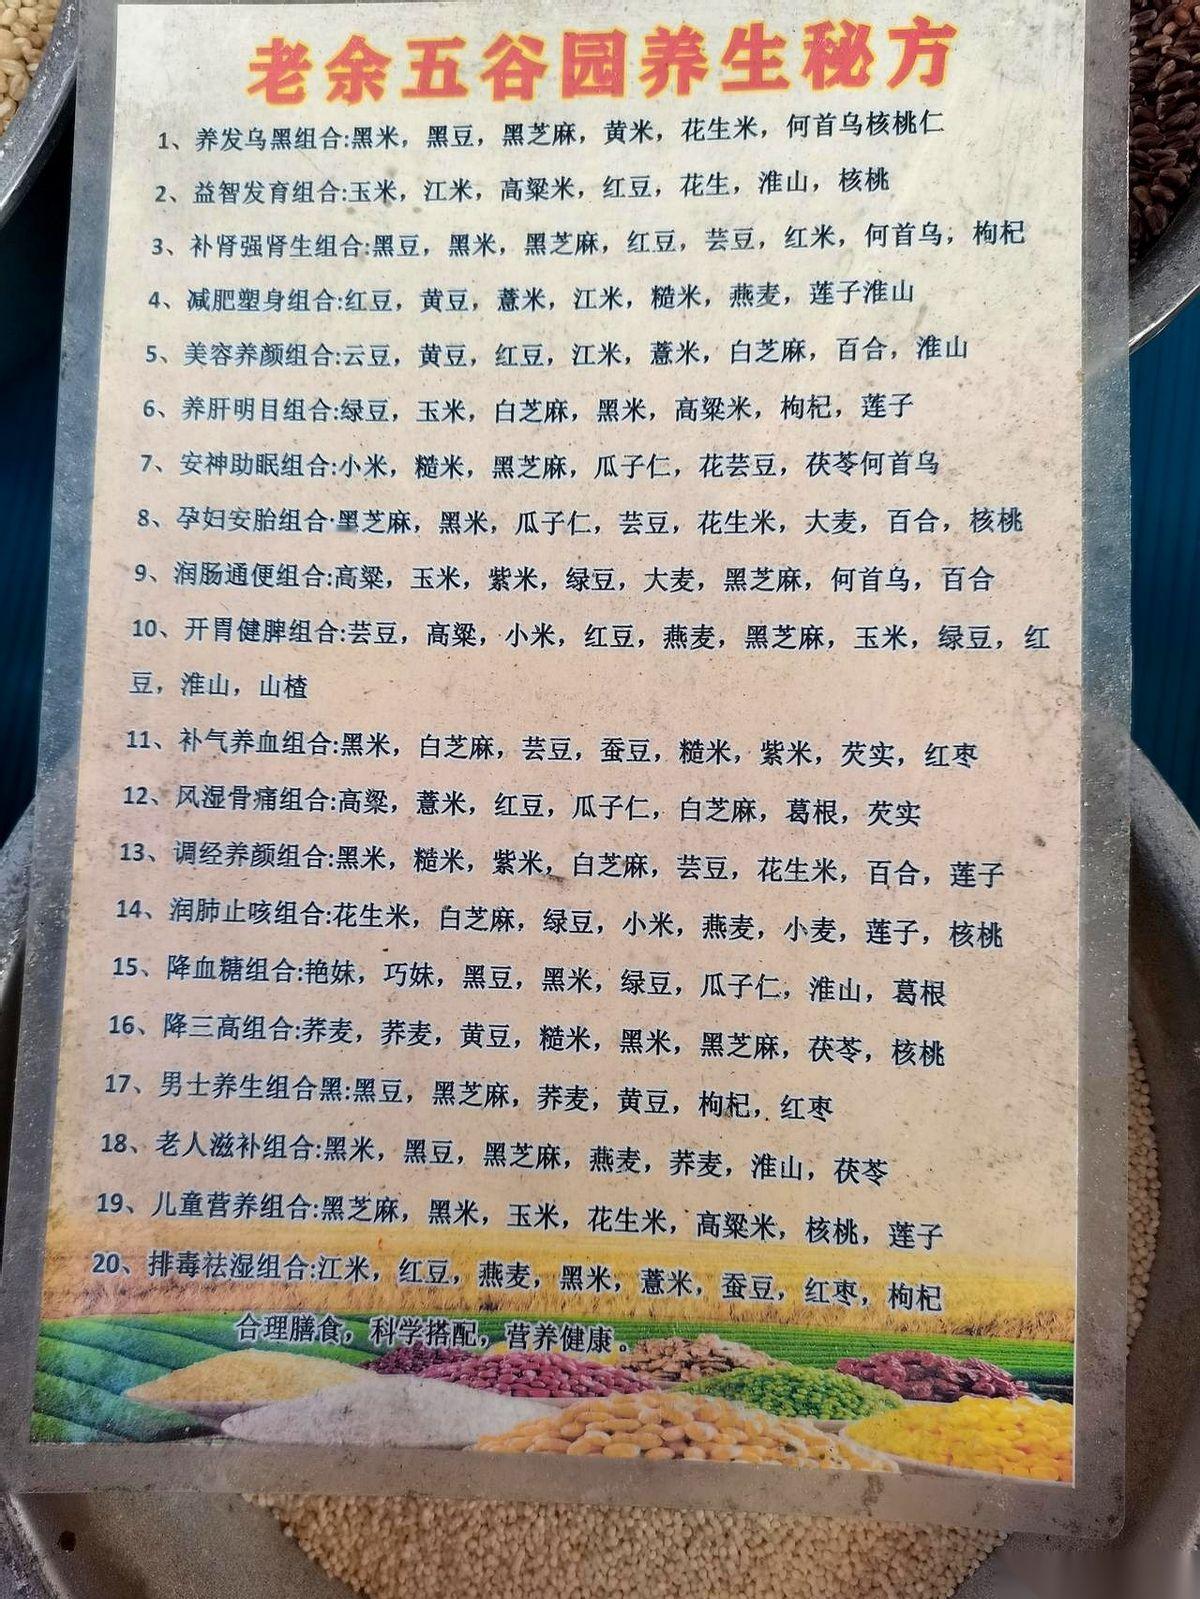 老余五谷园养生秘方
1、养发乌黑组合:黑米，黑豆，黑芝麻，黄米，花生米，何首乌核桃仁
2、益智发育组合:玉米，江米，高粱米，红豆，花生，淮山，核桃
3、补肾强肾生组合:黑豆，黑米，黑芝麻，红豆，芸豆，红米，何首乌，枸杞
4、减肥塑身组合:红豆，黄豆，薏米，江米，糙米，燕麦，莲子淮山
5、美容养颜组合:云豆，黄豆，红豆，江米，薏米，白芝麻，百合，淮山
6、养肝明目组合:绿豆，玉米，白芝麻，黑米，高粱米，枸杞，莲子
7、安神助眠组合:小米，糙米，黑芝麻，瓜子仁，花芸豆，茯苓何首乌
8、孕妇安胎组合:黑芝麻，黑米，瓜子仁，芸豆，花生米，大麦，百合，核桃
9、润肠通便组合:高粱，玉米，紫米，绿豆，大麦，黑芝麻，何首乌，百合
10、开胃健脾组合:芸豆，高粱，小米，红豆，燕麦，黑芝麻，玉米，绿豆，红
豆，淮山，山楂
11、补气养血组合:黑米，白芝麻，芸豆，蚕豆，糙米，紫米，芡实，红枣
12、风湿骨痛组合:高粱，薏米，红豆，瓜子仁，白芝麻，葛根，芡实
13、调经养颜组合:黑米，糙米，紫米，白芝麻，芸豆，花生米，百合，莲子
14、润肺止咳组合:花生米，白芝麻，绿豆，小米，燕麦，小麦，莲子，核桃
15、降血糖组合:艳妹，巧妹，黑豆，黑米，绿豆，瓜子仁，淮山，葛根
16、降三高组合:荞麦，荞麦，黄豆，糙米，黑米，黑芝麻，茯苓，核桃
17、男士养生组合黑:黑豆，黑芝麻，荞麦，黄豆，枸杞，红枣
18、老人滋补组合:黑米，黑豆，黑芝麻，燕麦，荞麦，淮山，茯苓
19、儿童营养组合:黑芝麻，黑米，玉米，花生米，高粱米，核桃，莲子
20、排毒祛湿组合:江米，红豆，燕麦，黑米，薏米，蚕豆，红枣，枸杞
合理膳食，科学搭配，营养健康。